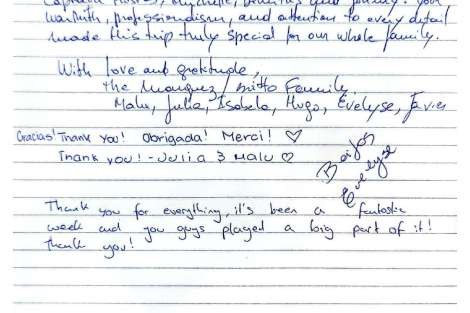 warmth, professionalism, and attention to every detail
made this trip truly special for our whole family.
With love and gratitude,
The Marquez / Britto Family.
Malu, Julia, Isabela, Hugo, Evelyse, Javier
Gracias! Thank you! Obrigada! Merci! ♡
Thank you! - Julia & Malu ♡
Beijos
Evelyse
Thank you for everything, it's been a fantastic
week and you guys played a big part of it!
Thank you!